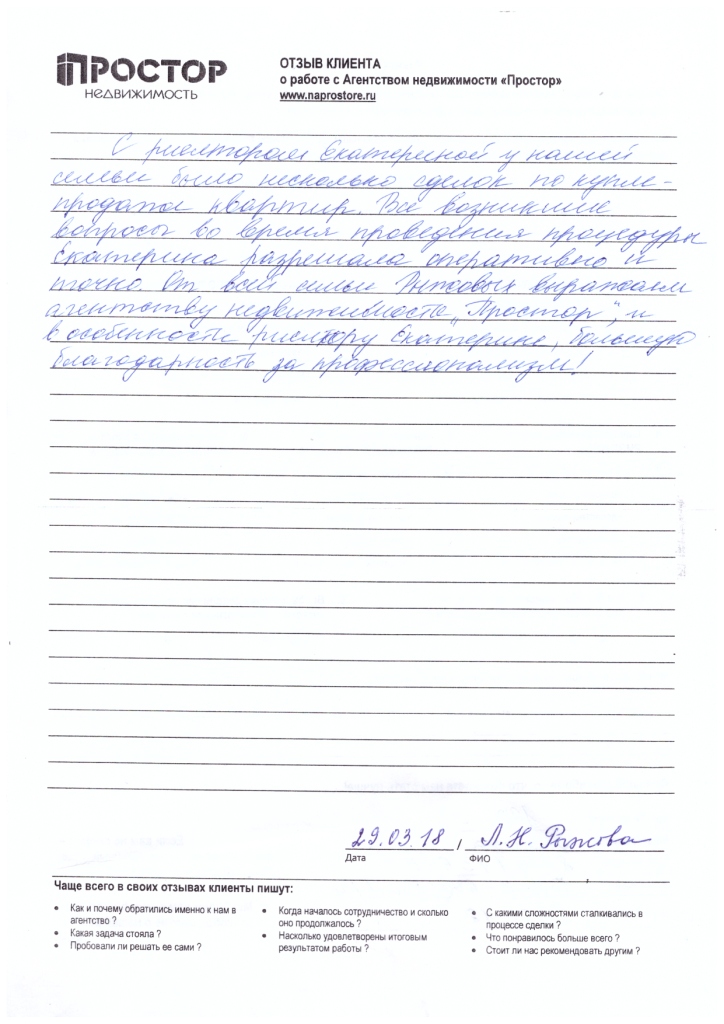 ПРОСТОР
НЕДВИЖИМОСТЬ
ОТЗЫВ КЛИЕНТА
о работе с Агентством недвижимости «Простор»
www.naprostore.ru
С риелтором Екатериной у нашей
семьи было несколько сделок по купле-
продаже квартир. Все возникшие
вопросы во время проведения процедуры
Екатерина разрешала оперативно и
точно. От всей семьи Рыжовых выражаем
агентству недвижимости „Простор", и
в особенности риелтору Екатерине, большую
благодарность за профессионализм!
29.03.18 / Л.Н. Рыжова
Дата ФИО
Чаще всего в своих отзывах клиенты пишут:
• Как и почему обратились именно к нам в
агентство ?
• Какая задача стояла ?
• Пробовали ли решать ее сами ?
• Когда началось сотрудничество и сколько
оно продолжалось ?
• Насколько удовлетворены итоговым
результатом работы ?
• С какими сложностями сталкивались в
процессе сделки ?
• Что понравилось больше всего ?
• Стоит ли нас рекомендовать другим ?